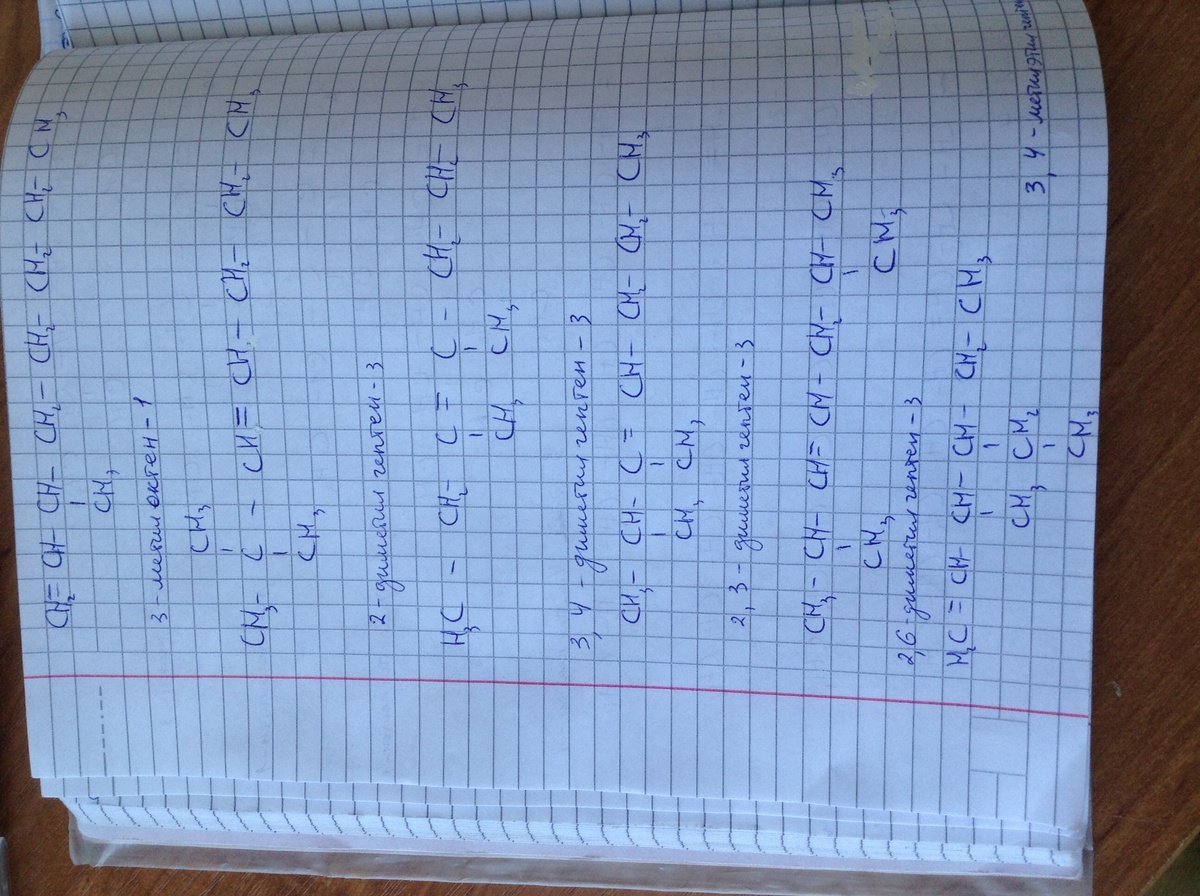 CH₂= CH- CH- CH₂- CH₂- CH₂- CH₂- CH₃
CH₃
3-метилоктен-1
CH₃
CH₃- C - CH = CH - CH₂- CH₂- CH₃
CH₃
2-диметилгептен-3
H₃C - CH₂- C = C - CH₂- CH₂- CH₃
CH₃ CH₃
3,4-диметилгептен-3
CH₃- CH- C = CH- CH₂- CH₂- CH₃
CH₃ CH₃
2,3-диметилгептен-3
CH₃- CH- CH= CH- CH₂- CH- CH₃
CH₃ CH₃
2,6-диметилгептен-3
H₂C = CH- CH- CH- CH₂- CH₃
CH₃ CH₂
CH₃
3,4-метилэтил